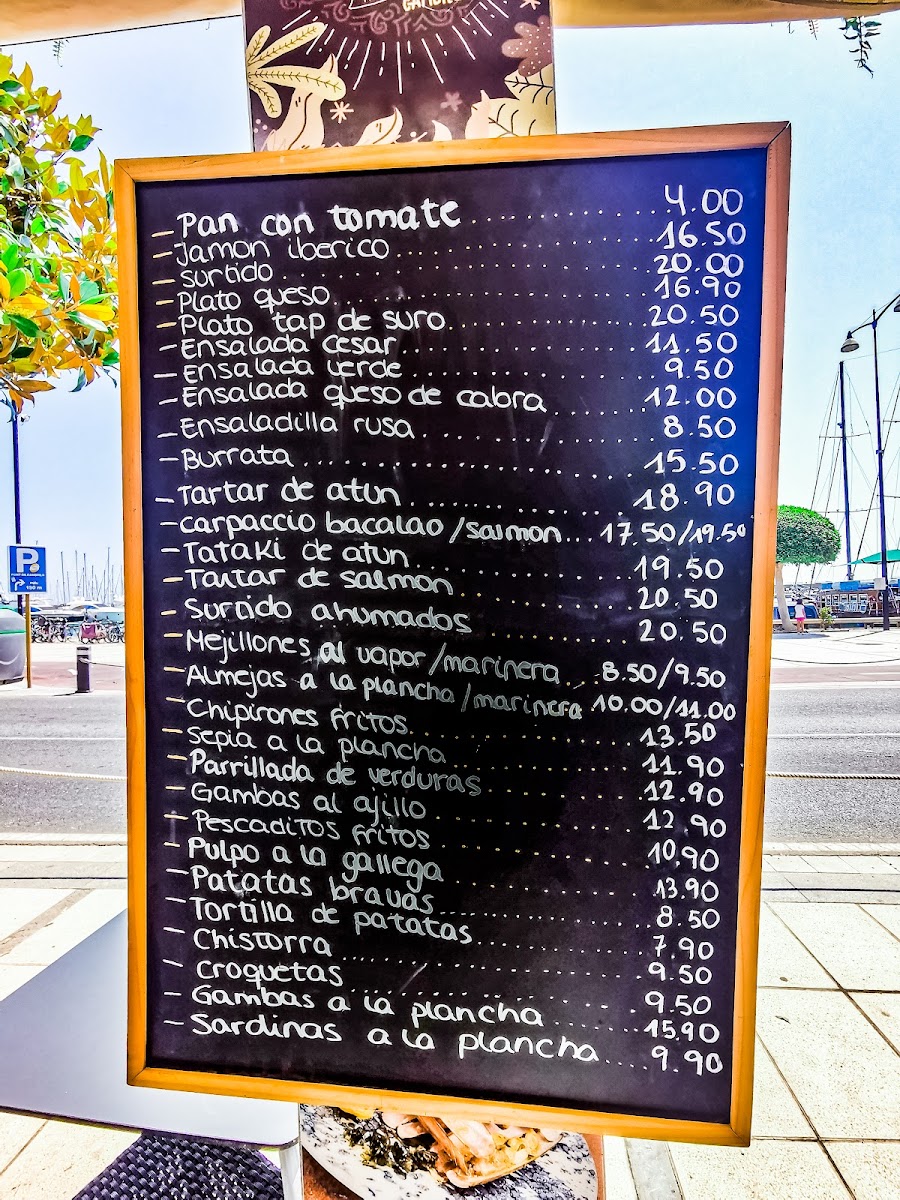 Pan con tomate ........ 4.00
Jamon iberico ........ 16.50
Surtido ........ 20.00
Plato queso ........ 16.90
Plato tap de suro ........ 20.50
Ensalada cesar ........ 11.50
Ensalada verde ........ 9.50
Ensalada queso de cabra ........ 12.00
Ensaladilla rusa ........ 8.50
Burrata ........ 15.50
Tartar de atun ........ 18.90
Carpaccio bacalao/salmon ... 17.50/19.50
Tataki de atun ........ 19.50
Tartar de salmon ........ 20.50
Surtido ahumados ........ 20.50
Mejillones al vapor/marinera ... 8.50/9.50
Almejas a la plancha/marinera 10.00/11.00
Chipirones fritos ........ 13.50
Sepia a la plancha ........ 11.90
Parrillada de verduras ........ 12.90
Gambas al ajillo ........ 12.90
Pescaditos fritos ........ 10.90
Pulpo a la gallega ........ 13.90
Patatas bravas ........ 8.50
Tortilla de patatas ........ 7.90
Chistorra ........ 9.50
Croquetas ........ 9.50
Gambas a la plancha ........ 15.90
Sardinas a la plancha ... 9.90
P